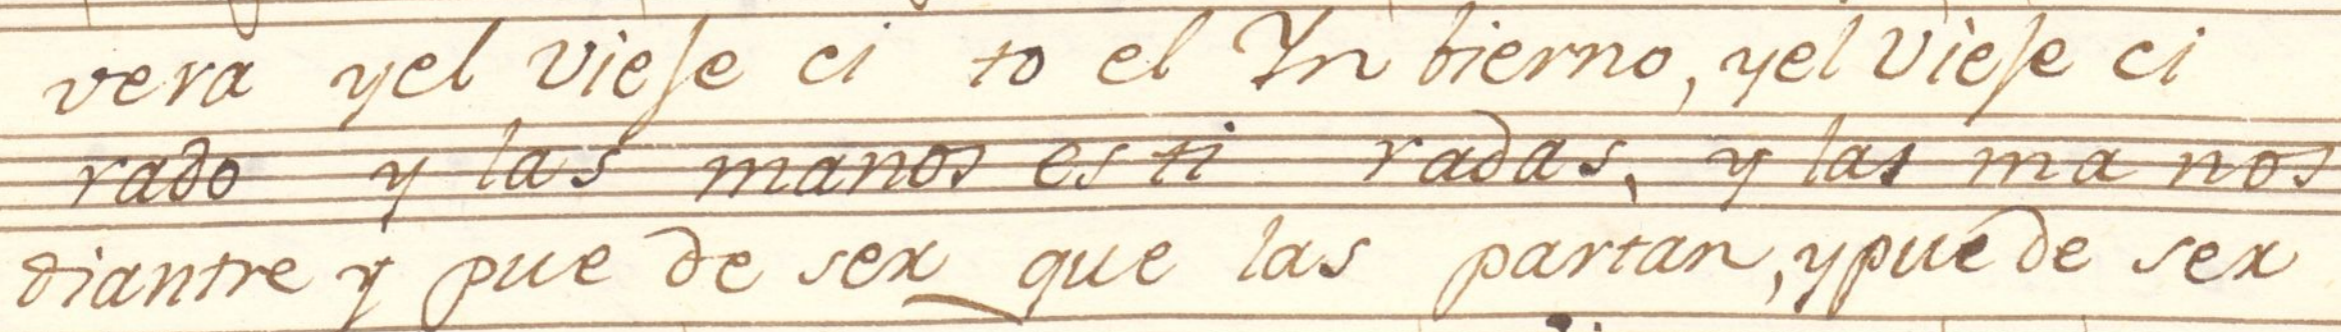 vera yel vieſe ci to el Yn bierno, yel vieſe ci
rado y las manos es ti radas, y las ma nos
diantre y pue de ser que las partan, ypuede ser